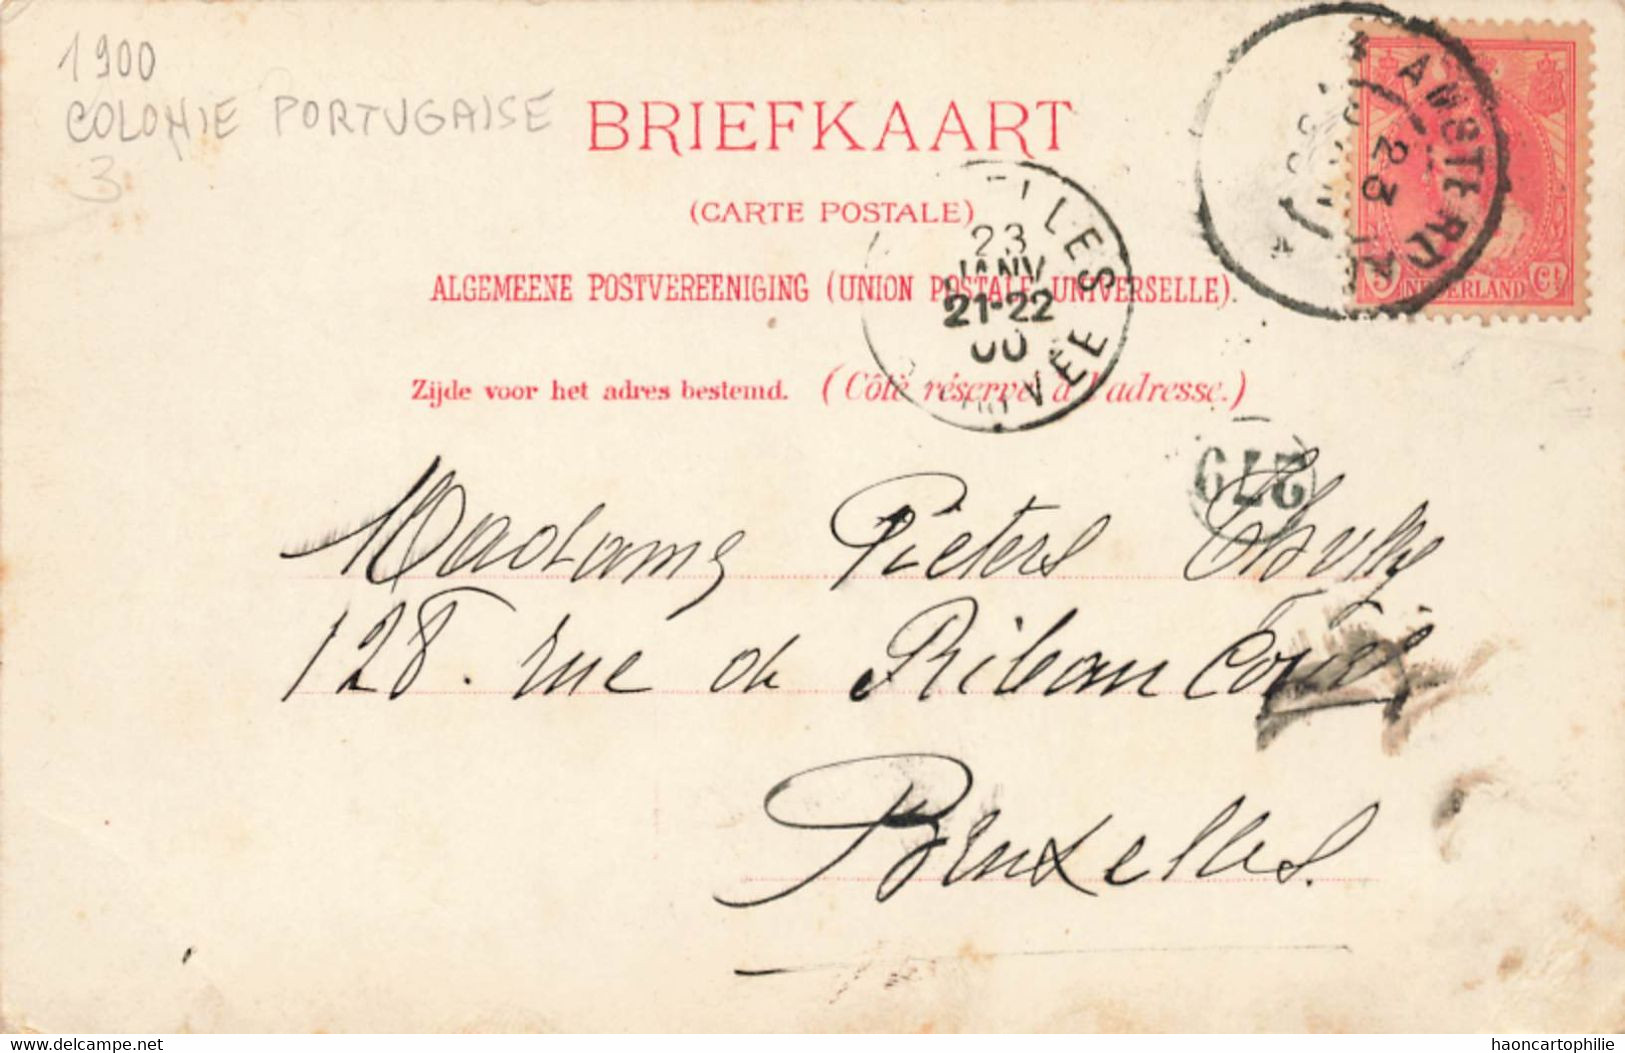 1900
COLONIE PORTUGAISE
3
BRIEFKAART
(CARTE POSTALE)
ALGEMEENE POSTVEREENIGING (UNION POSTALE UNIVERSELLE).
Zijde voor het adres bestemd. (Côté réservé à l'adresse.)
23
JANV
21-22
00
AMSTERD
NEDERLAND
5 Ct
279
Madame Pieters
128. rue de Ribaucourt
Bruxelles.
www.delcampe.net
haoncartophilie